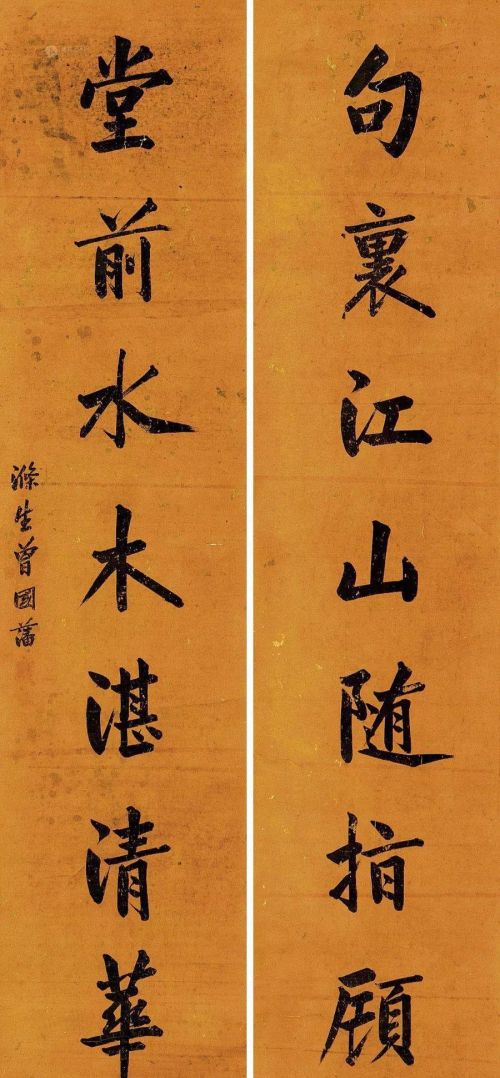 句裏江山随指顾
堂前水木湛清華
滌生曾國藩